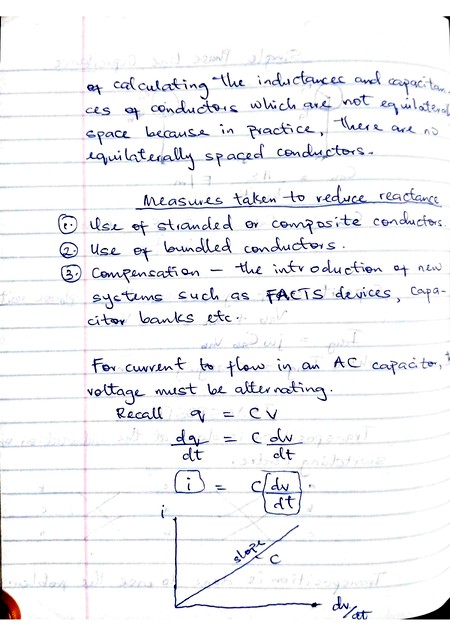 of calculating the inductances and capacitan
ces of conductors which are not equilateral
space because in practice, there are no
equilaterally spaced conductors.
Measures taken to reduce reactance
1. Use of stranded or composite conductors
2. Use of bundled conductors.
3. Compensation – the introduction of new
systems such as FACTS devices, Capa-
citor banks etc.
For current to flow in an AC capacitor,
voltage must be alternating.
Recall q = CV
dq/dt = C dv/dt
i = C dv/dt
i
slope
C
dv/dt